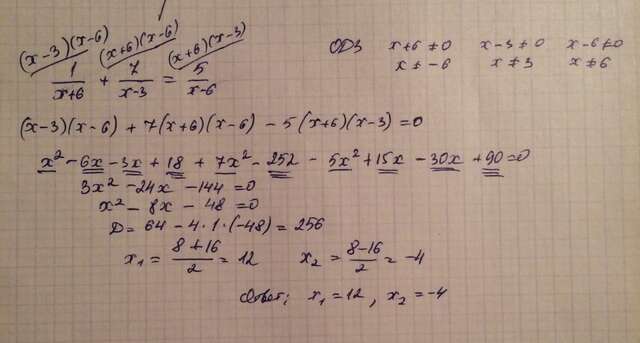 (x-3)(x-6) (x+6)(x-6) (x+6)(x-3)
1/(x+6) + 7/(x-3) = 5/(x-6)
ОДЗ x+6≠0 x-3≠0 x-6≠0
x≠-6 x≠3 x≠6
(x-3)(x-6) + 7(x+6)(x-6) - 5(x+6)(x-3) = 0
x² - 6x - 3x + 18 + 7x² - 252 - 5x² + 15x - 30x + 90 = 0
3x² - 24x - 144 = 0
x² - 8x - 48 = 0
D = 64 - 4·1·(-48) = 256
x₁ = (8+16)/2 = 12 x₂ = (8-16)/2 = -4
Ответ: x₁ = 12, x₂ = -4